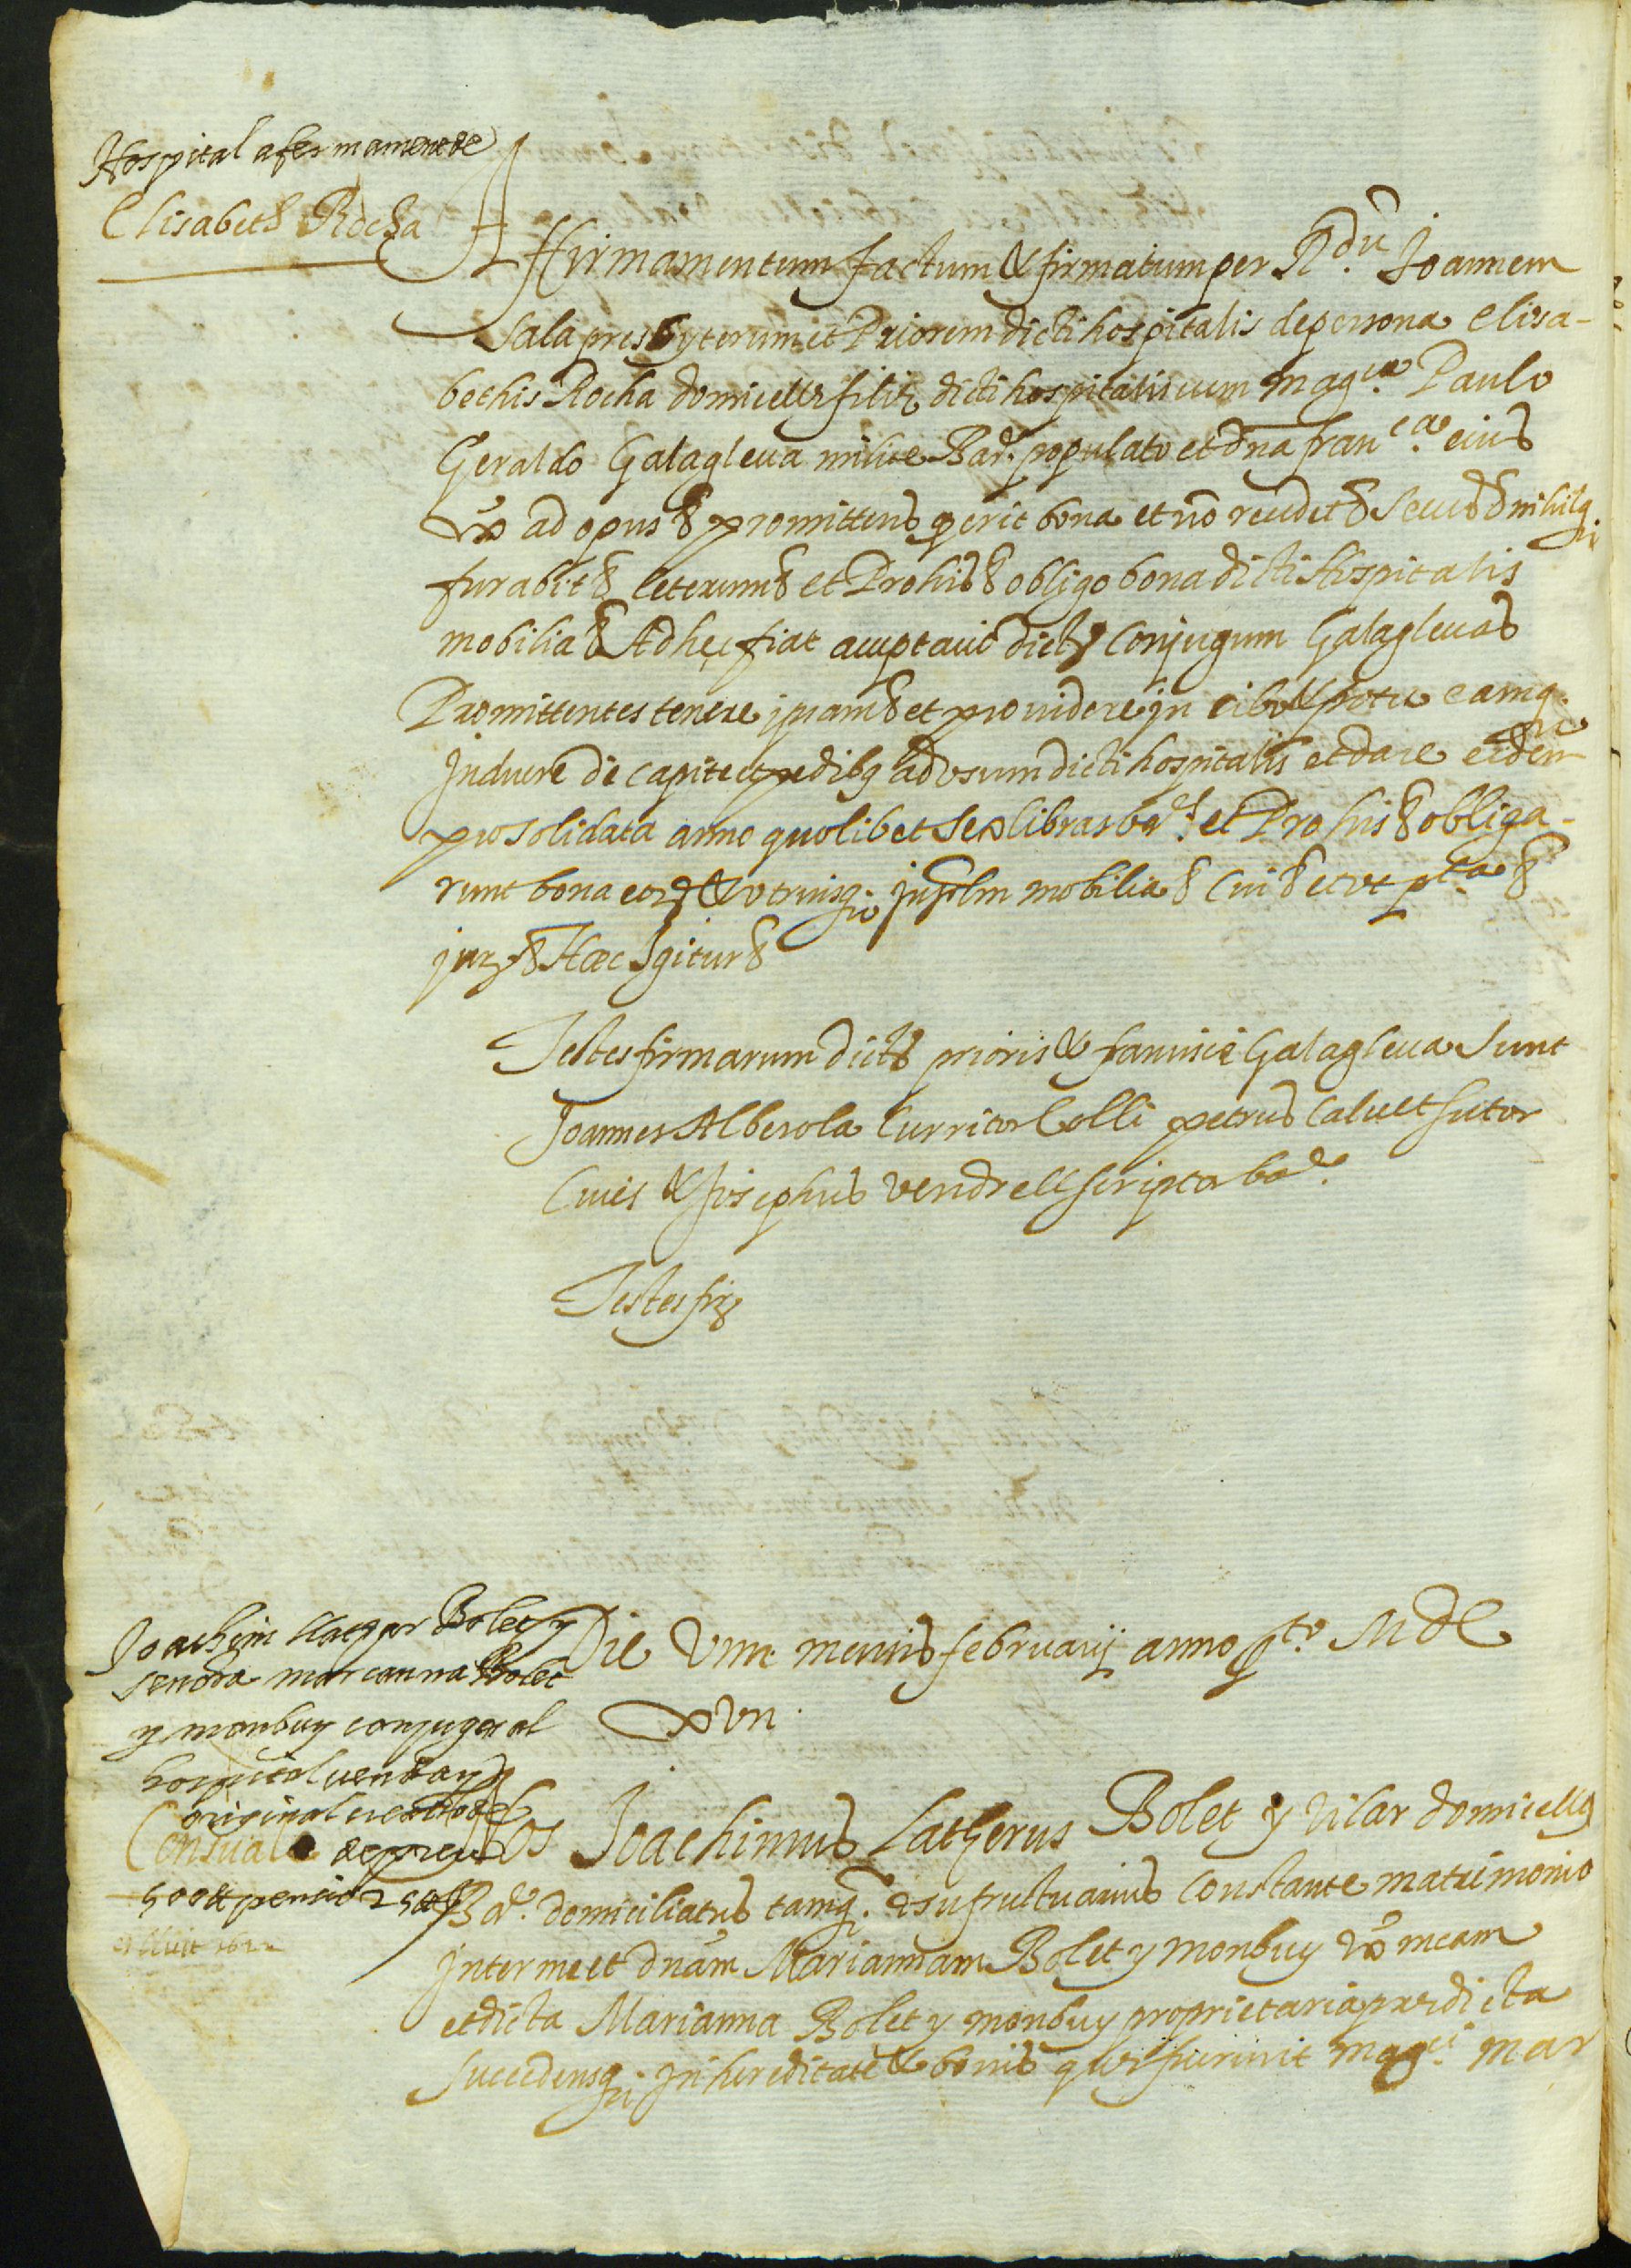 Hospital afermament de
Elisabeth Rocha
Affirmamentum factum & firmatum per R.du Joannem
Sala presbyterum et Priorem dicti hospitalis de persona Elisa-
bethis Rocha domicellæ filiæ dicti hospitalis cum mag.co Paulo
Geraldo Galagleua milite Bar. populato et dna fran.ca eius
vx ad opus & promittens q erit bona et nō recedet & secus & nihilq;
furabit & Ceterum & et Pro his & obligo bona dicti Hospitalis
mobilia & Ad hec fiat acceptauit dict Conjugum Galagleuas
Promittentes tenere ipsam & et prouidere in cibo & potu eamq;
Induere de capite et pedibq ad vsum dicti hospitalis et dare eidem
pro solidata anno quolibet sex libras bar. et Pro his & obliga-
runt bona eor & vtriusq; insolm mobilia & Cui & et vt p.ta &
jur & Hæc Igitur &
Testes firmarum dict prioris & francisce Galagleua sunt
Joannes Alberola Curritor Colli petrus Caluet sutor
Ciues & Josephus vendrell scriptor bar.
Testes fir
Joachim Llatzer Bolet y
señora marianna Bolet
y monbuy conjuges al
hospital venda y
original creatio de
Censual de preu
500 ll pensio 25 ll
Die VIII mensis februarij anno p.to MDC
XVII.
Nos Joachimus Latzerus Bolet y vilar domicellq
Bar. domiciliatus tamq. vsufructuarius Constante matrimonio
Inter me et dnām Mariannam Bolet y monbuy vx meam
et dicta Marianna Bolet y monbuy proprietaria prædicta
succedensq; In hereditate & bonis quæ fuerunt mag.ci mar